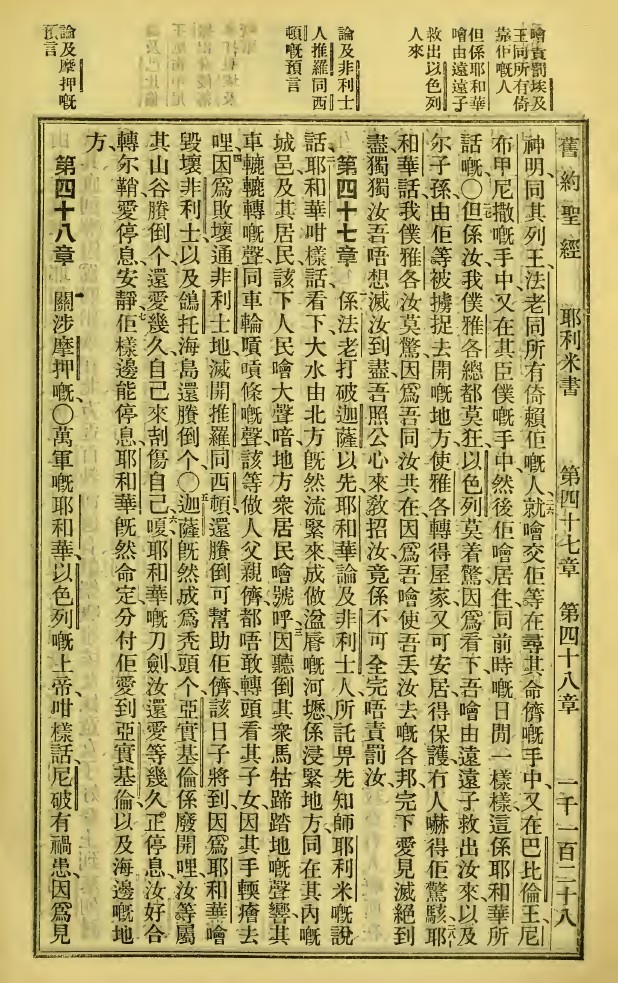 舊約聖經 耶利米書 第四十七章 第四十八章 一千一百二十八
噲責罰埃及
王同所有倚
靠佢嘅人
但係耶和華
噲由遠遠子
救出以色列
人來
論及非利士
人推羅同西
頓嘅預言
論及摩押嘅
預言
神明、同其列王、法老同所有倚賴佢嘅人、二六就噲交佢等在尋其命儕嘅手中、又在巴比倫王尼
布甲尼撒嘅手中、又在其臣僕嘅手中、然後佢噲居住、同前時嘅日間一樣樣、這係耶和華所
話嘅、〇二七但係汝我僕雅各、總都莫狂、以色列莫着驚、因爲看下、吾噲由遠遠子救出汝來、以及
尔子孫、由佢等被擄捉去開嘅地方、使雅各轉得屋家、又可安居得保護、冇人嚇得佢驚駭、二八耶
和華話、我僕雅各汝莫驚、因爲吾同汝共在、因爲吾噲使吾丟汝去嘅各邦、完下愛見滅絕到
盡、獨獨汝吾唔想滅汝到盡、吾照公心來敎招汝、竟係不可全完唔責罰汝、
第四十七章 一係法老打破迦薩以先、耶和華論及非利士人、所託畀先知師耶利米嘅說
話、二耶和華咁樣話、看下、大水由北方旣然流緊來、成做溢唇嘅河壢、係浸緊地方同在其內嘅
城邑、及其居民、該下人民噲大聲喑、地方衆居民噲號呼、三因聽倒其衆馬牯蹄踏地嘅聲響、其
車轆轆轉嘅聲、同車輪嘪嘪條嘅聲、該等做人父親儕、都唔敢轉頭看其子女、因其手輭瘡去
哩、四因爲敗壞通非利士地、滅開推羅同西頓還賸倒可幫助佢儕、該日子將到、因爲耶和華噲
毀壞非利士、以及鴿托海島還賸倒个、〇五迦薩旣然成爲禿頭个、亞實基倫係廢開哩、汝等屬
其山谷賸倒个、還愛幾久自己來刮傷自己、六嗄耶和華嘅刀劍、汝還愛等幾久正停息、汝好合
轉尔鞘、愛停息安靜、七佢樣邊能停息、耶和華旣然命定分付佢、愛到亞實基倫、以及海邊嘅地
方、
第四十八章 一關涉摩押嘅、〇萬軍嘅耶和華、以色列嘅上帝、咁樣話、尼破有禍患、因爲見